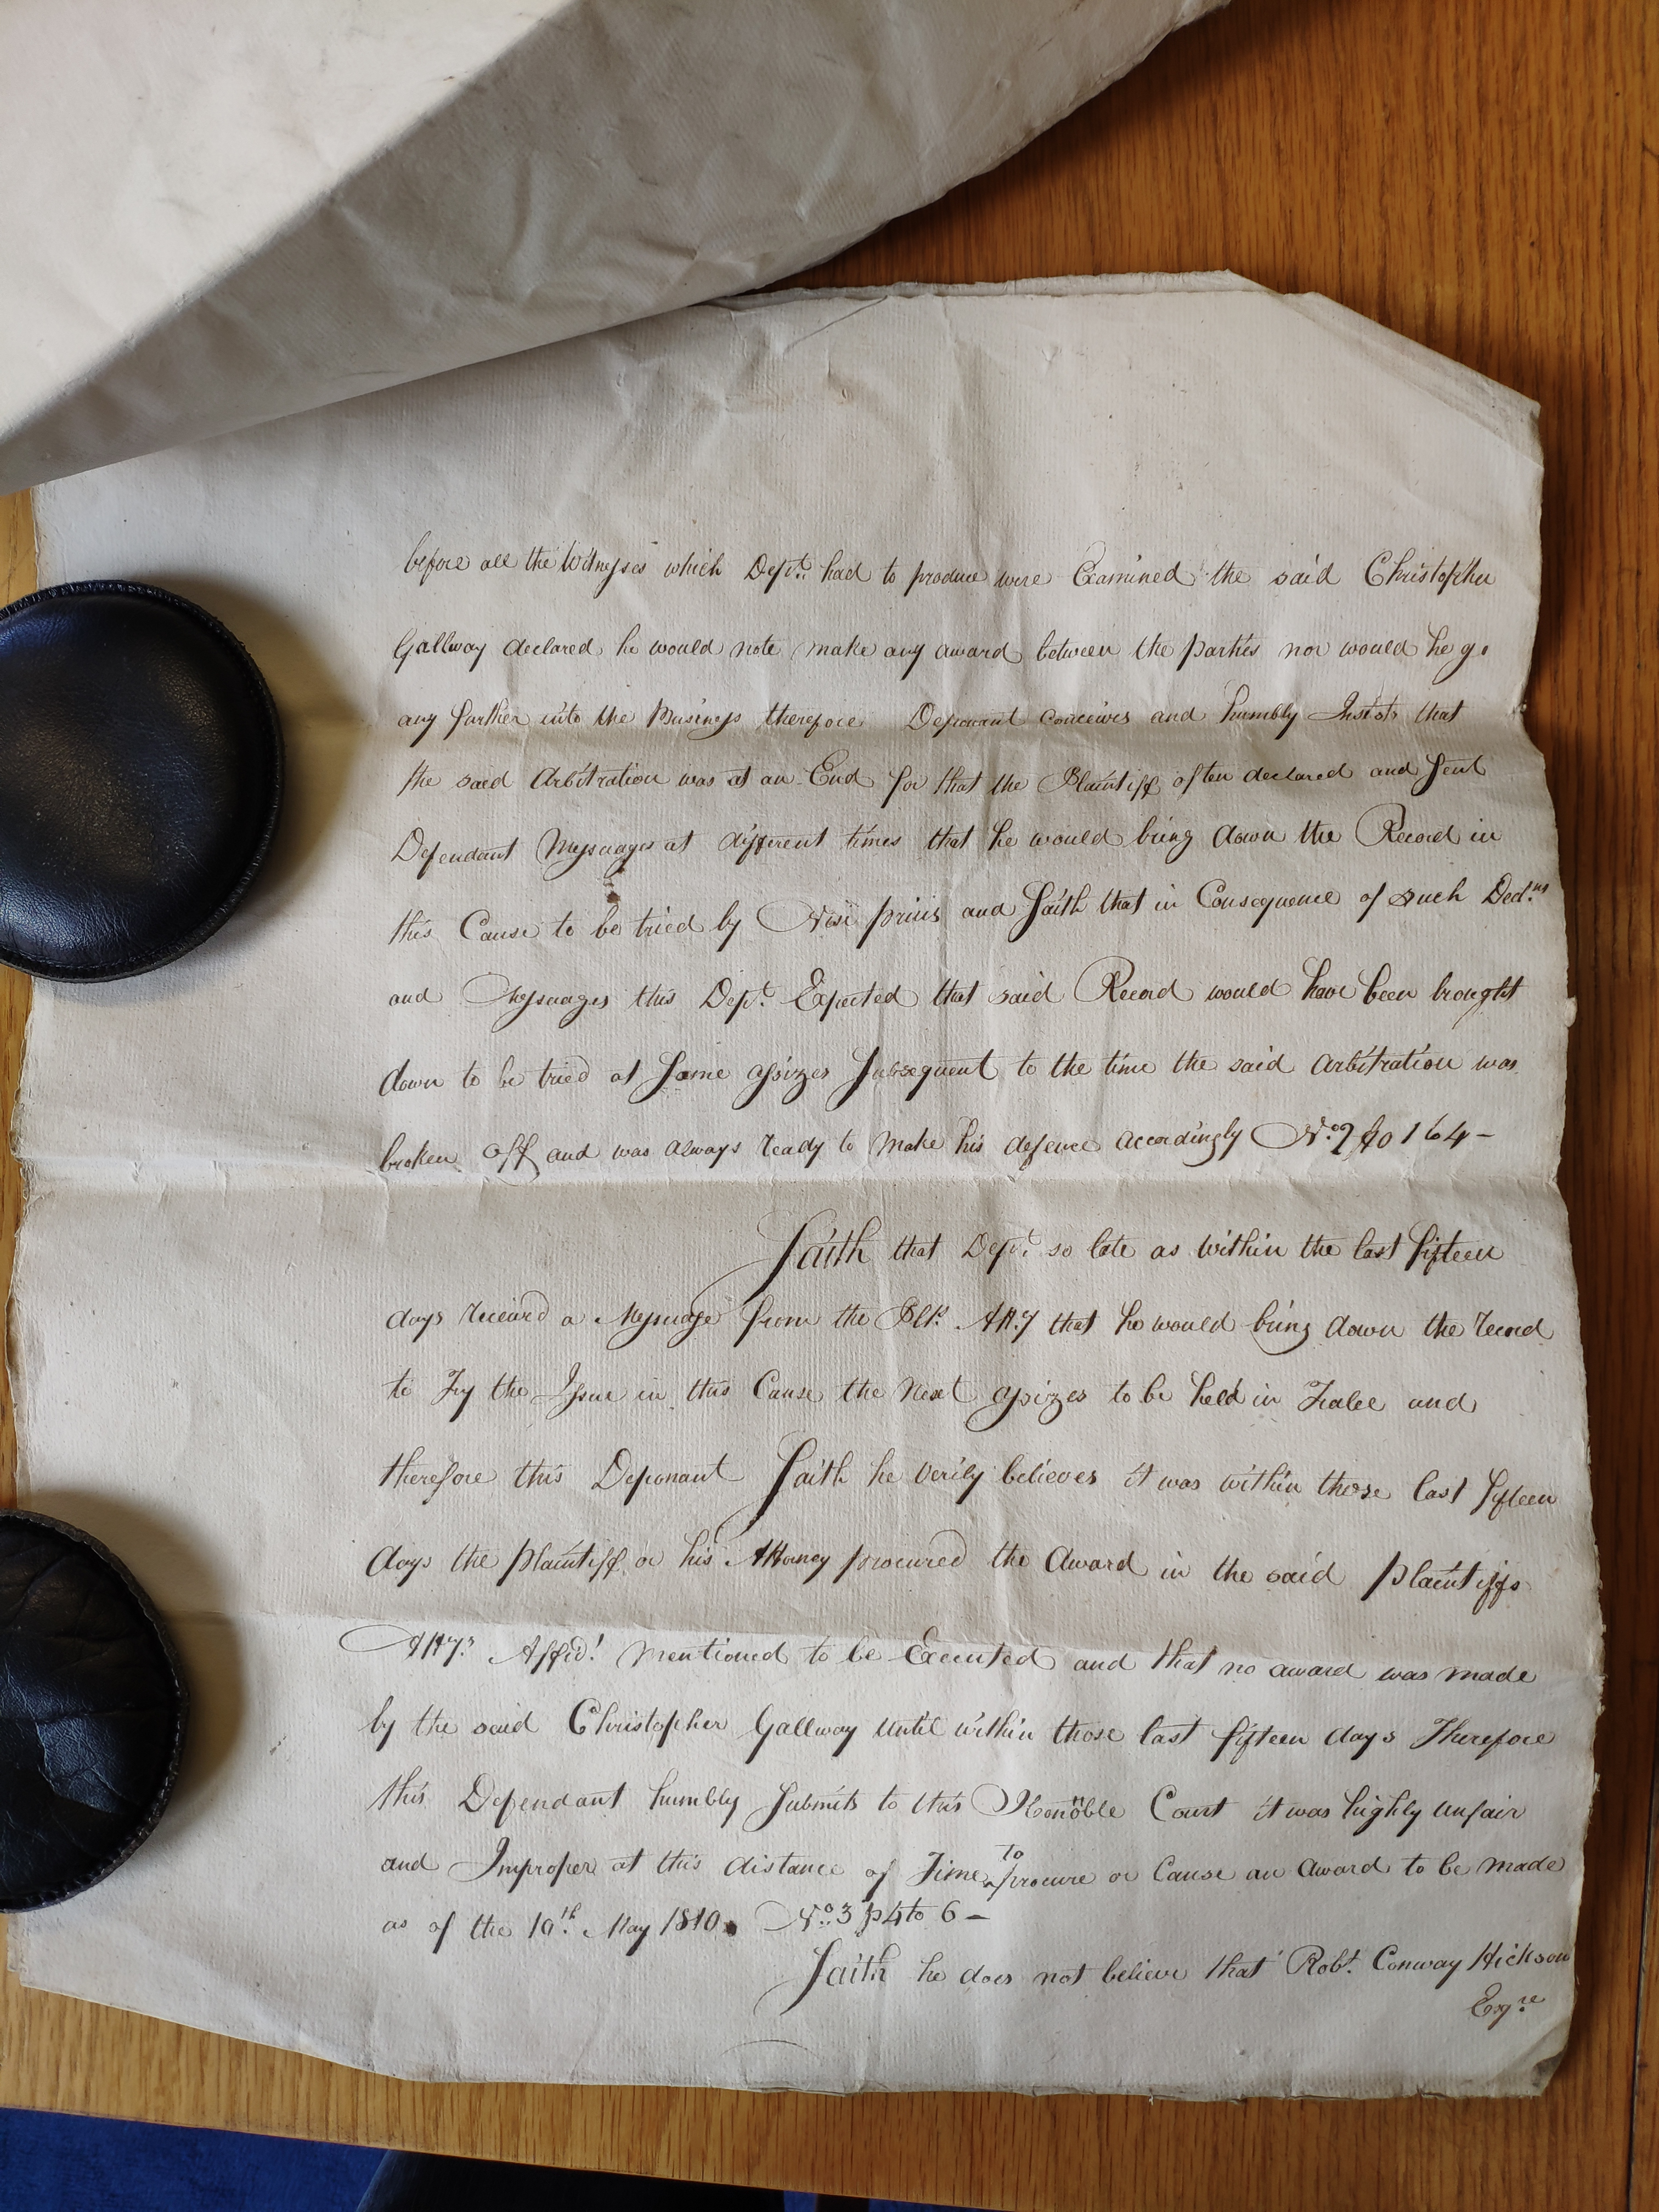 before all the Witnesses which Dept. had to produce were Examined the said Christopher
Gallway declared he would note make any award between the parties nor would he go
any further into the Business therefore Deponant conceives and humbly Insists that
the said Arbitration was at an End for that the Plaintiff often declared and Sent
Defendant Messuages at different times that he would bring down the Record in
this Cause to be tried by Nisi prius and Saith that in Consequence of such Decl.ns
and Messuages this Dept. Expected that said Record would have been brought
down to be tried at Some assizes Subsequent to the time the said Arbitration was
broken off and was always ready to make his defence accordingly No. 2 fo 164 -
Saith that Dept. so late as within the last fifteen
days receiard a Messuage from the Plt.s Att.y that he would bring down the record
to Try the Issue in this Cause the next assizes to be held in Tralee and
therefore this Deponant Saith he verily believes it was within those last fifteen
days the Plaintiff or his Attorney procured the Award in the said Plaintiffs
Att.ys Affid.t mentioned to be Executed and that no award was made
by the said Christopher Gallway until within those last fifteen days Therefore
this Defendant humbly Submits to this Honnoble Court it was highly unfair
and Improper at this distance of Time to procure or Cause an Award to be made
as of the 10th. May 1810. No. 3 p4 to 6 -
Saith he does not believe that Robt. Conway Hickson
Esqre